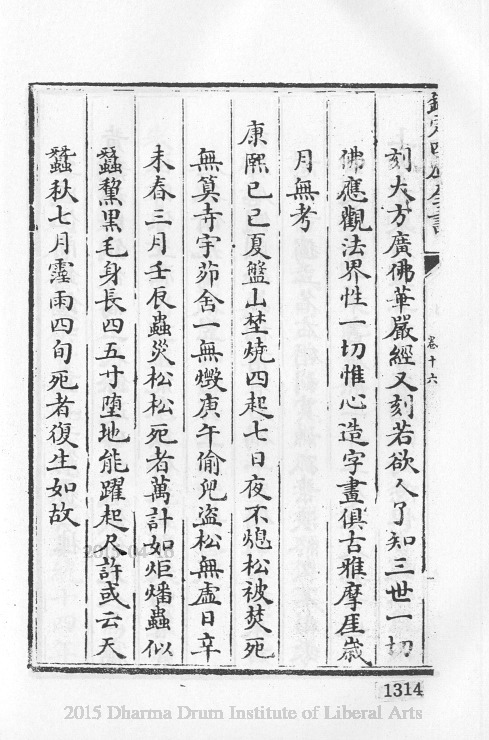 欽定四庫全書
卷十六
刻大方廣佛華嚴經又刻若欲人了知三世一切
佛應觀法界性一切惟心造字畫俱古雅摩厓歲
月無考
康熙己巳夏盤山埜燒四起七日夜不熄松被焚死
無算寺宇茆舍一無燬庚午偷兒盗松無虛日辛
未春三月壬辰蟲災松松死者萬計如炬燔蟲似
蠶黧黑毛身長四五寸墮地能躍起尺許或云天
蠶秋七月霪雨四旬死者復生如故
1314
2015 Dharma Drum Institute of Liberal Arts